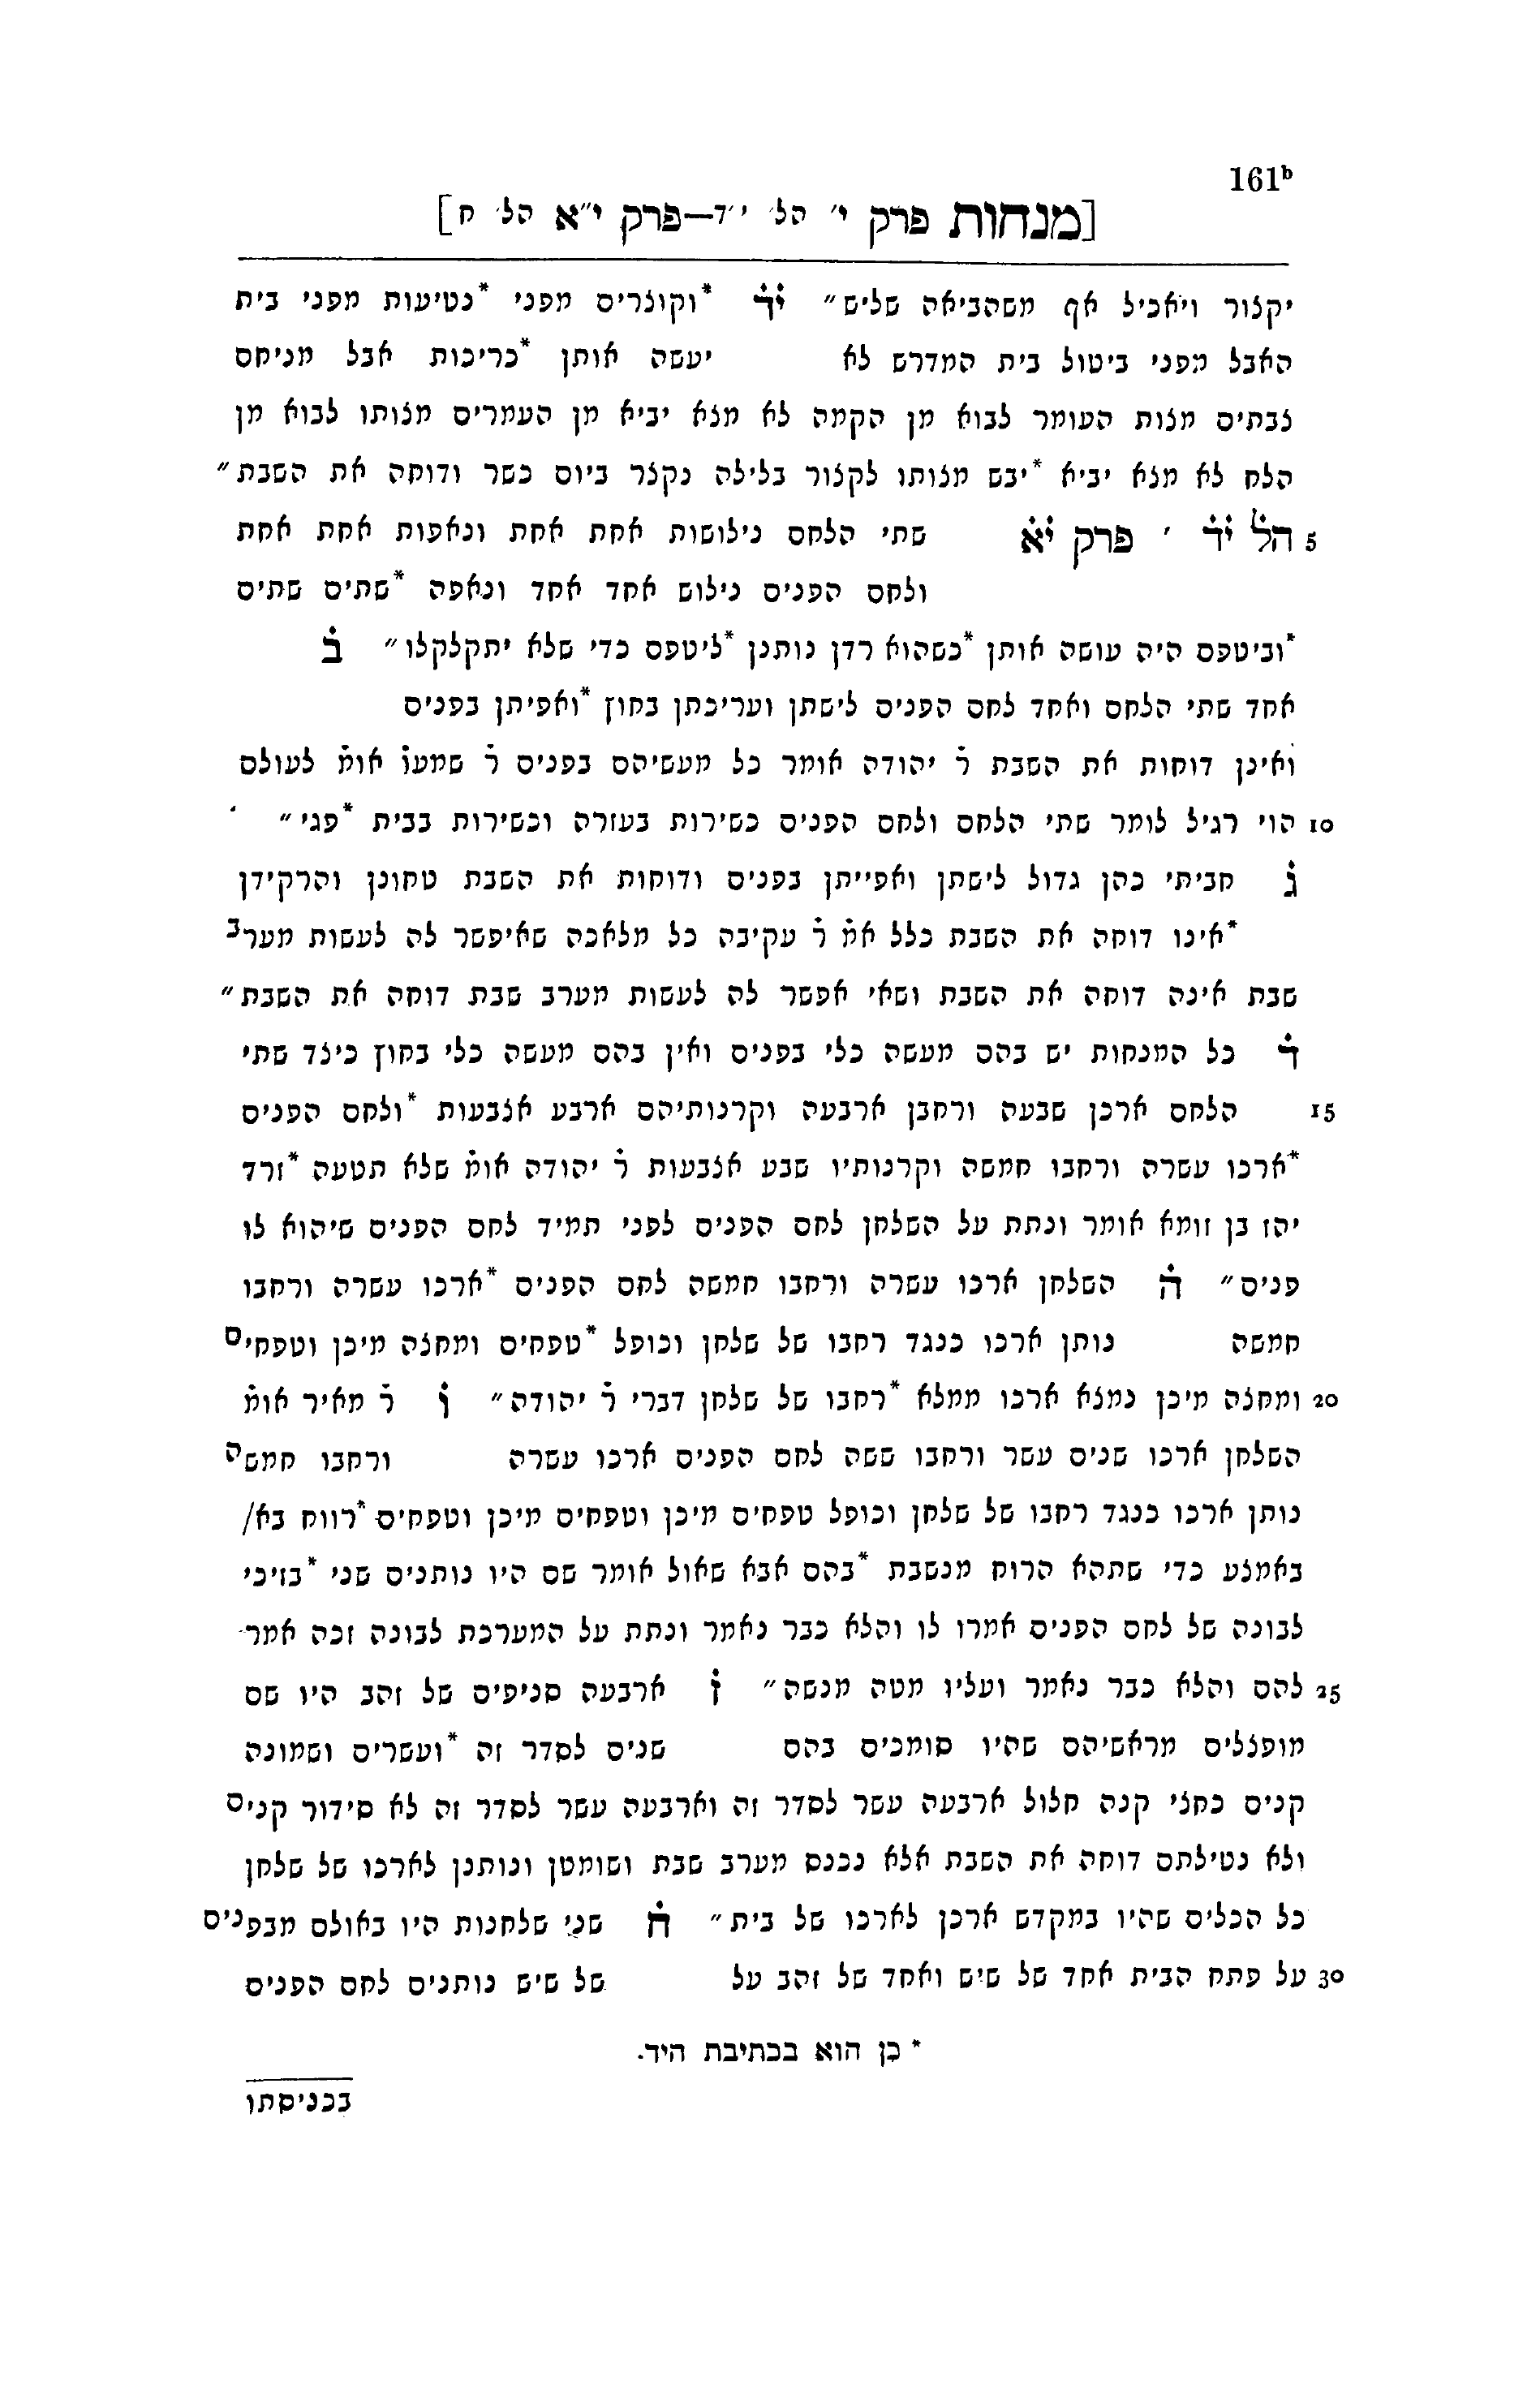 161b
[מנחות פרק י׳ הל׳ י״ד—פרק י״א הל׳ ח]
יקצור ויאכיל אף משהביאה שליש״ יד *וקוצרים מפני *נטיעות מפני בית
האבל מפני ביטול בית המדרש לא יעשה אותן *כריכות אבל מניחם
צבתים מצות העומר לבוא מן הקמה לא מצא יביא מן העמרים מצותו לבוא מן
הלח לא מצא יביא *יבש מצותו לקצור בלילה נקצר ביום כשר ודוחה את השבת״
5 הל יד ׳ פרק יא שתי הלחם נילושות אחת אחת ונאפות אחת אחת
ולחם הפנים נילוש אחד אחד ונאפה *שתים שתים
*וביטפס היה עושה אותן *כשהוא רדן נותנן *ליטפס כדי שלא יתקלקלו״ ב
אחד שתי הלחם ואחד לחם הפנים לישתן ועריכתן בחוץ *ואפיתן בפנים
ואינן דוחות את השבת ר̇ יהודה אומר כל מעשיהם בפנים ר̇ שמעו̇ אומ̇ לעולם
10 הוי רגיל לומר שתי הלחם ולחם הפנים כשירות בעזרה וכשירות בבית *פגי״
ג חביתי כהן גדול לישתן ואפייתן בפנים ודוחות את השבת טחונן והרקידן
*אינו דוחה את השבת כלל אמ̇ ר̇ עקיבה כל מלאכה שאיפשר לה לעשות מערב
שבת אינה דוחה את השבת ושאי אפשר לה לעשות מערב שבת דוחה את השבת״
ד כל המנחות יש בהם מעשה כלי בפנים ואין בהם מעשה כלי בחוץ כיצד שתי
15 הלחם ארכן שבעה ורחבן ארבעה וקרנותיהם ארבע אצבעות *ולחם הפנים
*ארכו עשרה ורחבו חמשה וקרנותיו שבע אצבעות ר̇ יהודה אומ̇ שלא תטעה *זרד
יהז בן זומא אומר ונתת על השלחן לחם הפנים לפני תמיד לחם הפנים שיהוא לו
פנים״ ה השלחן ארכו עשרה ורחבו חמשה לחם הפנים *ארכו עשרה ורחבו
חמשה נותן ארכו כנגד רחבו של שלחן וכופל *טפחים ומחצה מיכן וטפחים
20 ומחצה מיכן נמצא ארכו ממלא *רחבו של שלחן דברי ר̇ יהודה״ ו ר̇ מאיר אומ̇
השלחן ארכו שנים עשר ורחבו ששה לחם הפנים ארכו עשרה ורחבו חמשה
נותן ארכו כנגד רחבו של שלחן וכופל טפחים מיכן וטפחים מיכן וטפחים *רווח בא/
באמצע כדי שתהא הרוח מנשבת *בהם אבא שאול אומר שם היו נותנים שני *בזיכי
לבונה של לחם הפנים אמרו לו והלא כבר נאמר ונתת על המערכת לבונה זכה אמר
25 להם והלא כבר נאמר ועליו מטה מנשה״ ז ארבעה סניפים של זהב היו שם
מופצלים מראשיהם שהיו סומכים בהם שנים לסדר זה *ועשרים ושמונה
קנים כחצי קנה חלול ארבעה עשר לסדר זה וארבעה עשר לסדר זה לא סידור קנים
ולא נטילתם דוחה את השבת אלא נכנס מערב שבת ושומטן ונותנן לארכו של שלחן
כל הכלים שהיו במקדש ארכן לארכו של בית״ ח שני שלחנות היו באולם מבפנים
30 על פתח הבית אחד של שיש ואחד של זהב על של שיש נותנים לחם הפנים
* כן הוא בכתיבת היד.
בכניסתו